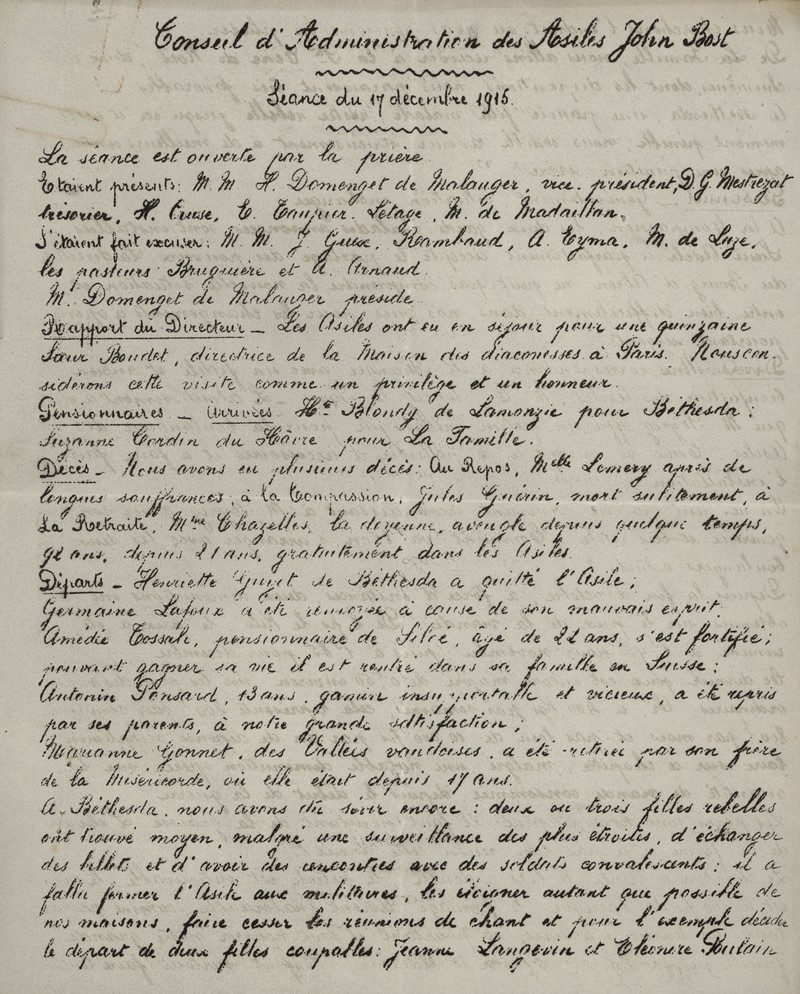 Conseil d'Administration des Asiles John Bost
Séance du 17 décembre 1915.
La séance est ouverte par la prière.
Etaient présents: M. M H. Domenget de Malauger, vice-président, D. G. Mestrezat
trésorier, H. Cruse, E. Laupier. Létage, M. de Madaillan.
S'étaient fait excuser: M. M. J Guex, Rambaud, A. Eyma, M. de Luze,
les pasteurs Bruguière et A. Arnaud.
M. Domenget de Malauger préside
Rapport du Directeur _ Les Asiles ont eu en séjour pour une quinzaine
Sœur Boudet, directrice de la Maison des diaconesses à Paris. Nous con-
sidérons cette visite comme un privilège et un honneur.
Pensionnaires _ Arrivées. Blondy de Lamonzie pour Béthesda;
Suzanne Cordin du Hâvre pour La Famille.
Décès _ Nous avons eu plusieurs décès: Au Repos, Melle Lemery après de
longues souffrances; à la Compassion, Jules Guérin, mort subitement, à
La Retraite, Mme Chazelles, la doyenne, aveugle depuis quelque temps,
92 ans, depuis 21 ans, gratuitement dans les Asiles.
Départs _ Henriette de Béthesda a quitté l'Asile;
Germaine Lafoux a été renvoyée à cause de son mauvais esprit.
Amédée Cossali, pensionnaire de Siloé, âgé de 22 ans, s'est fortifié;
pouvant gagner sa vie il est rentré dans sa famille en Suisse;
Antonin Ponsard, 13 ans, gamin insupportable et vicieux, a été repris
par ses parents, à notre grande satisfaction;
Marianne Gonnet, des Vallées vaudoises, a été retirée par son frère
de la Miséricorde, où elle était depuis 17 ans.
A Béthesda, nous avons dû sévir encore: deux ou trois filles rebelles
ont trouvé moyen, malgré une surveillance des plus étroites, d'échanger
des billets et d'avoir des rencontres avec des soldats convalescents: il a
fallu fermer l'Asile aux militaires, les éloigner autant que possible de
nos maisons, faire cesser les réunions de chant et pour l'exemple décider
le départ de deux filles coupables: Jeanne Langevin et Eléonore Poulain